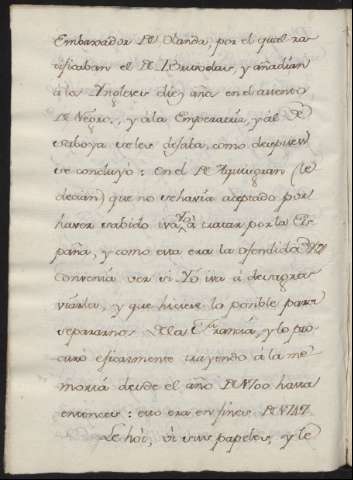 Embaxador de Olanda, por el qual ra-
tificaban el de Bruselas, y añadian
à los Yngleses diez años en el assiento
de Negros, y à la Emperatriz, y al de
Saboya se les dejaba, como despues
se concluyó: En el de Aquisgran (le
decian) que no se havia aceptado por
haver sabido iva Yo à tratar por la Es-
paña, y como esta era la ofendida
convenia ver si Yo iva à desagra-
viarla, y que hiciese lo posible para
separarnos de la Francia, y lo pro-
curó eficazmente trayendo à la me-
moria desde el año de 1700 hasta
entonces: esto era en fines de 1747
Le hoì, vì sus papeles, y le